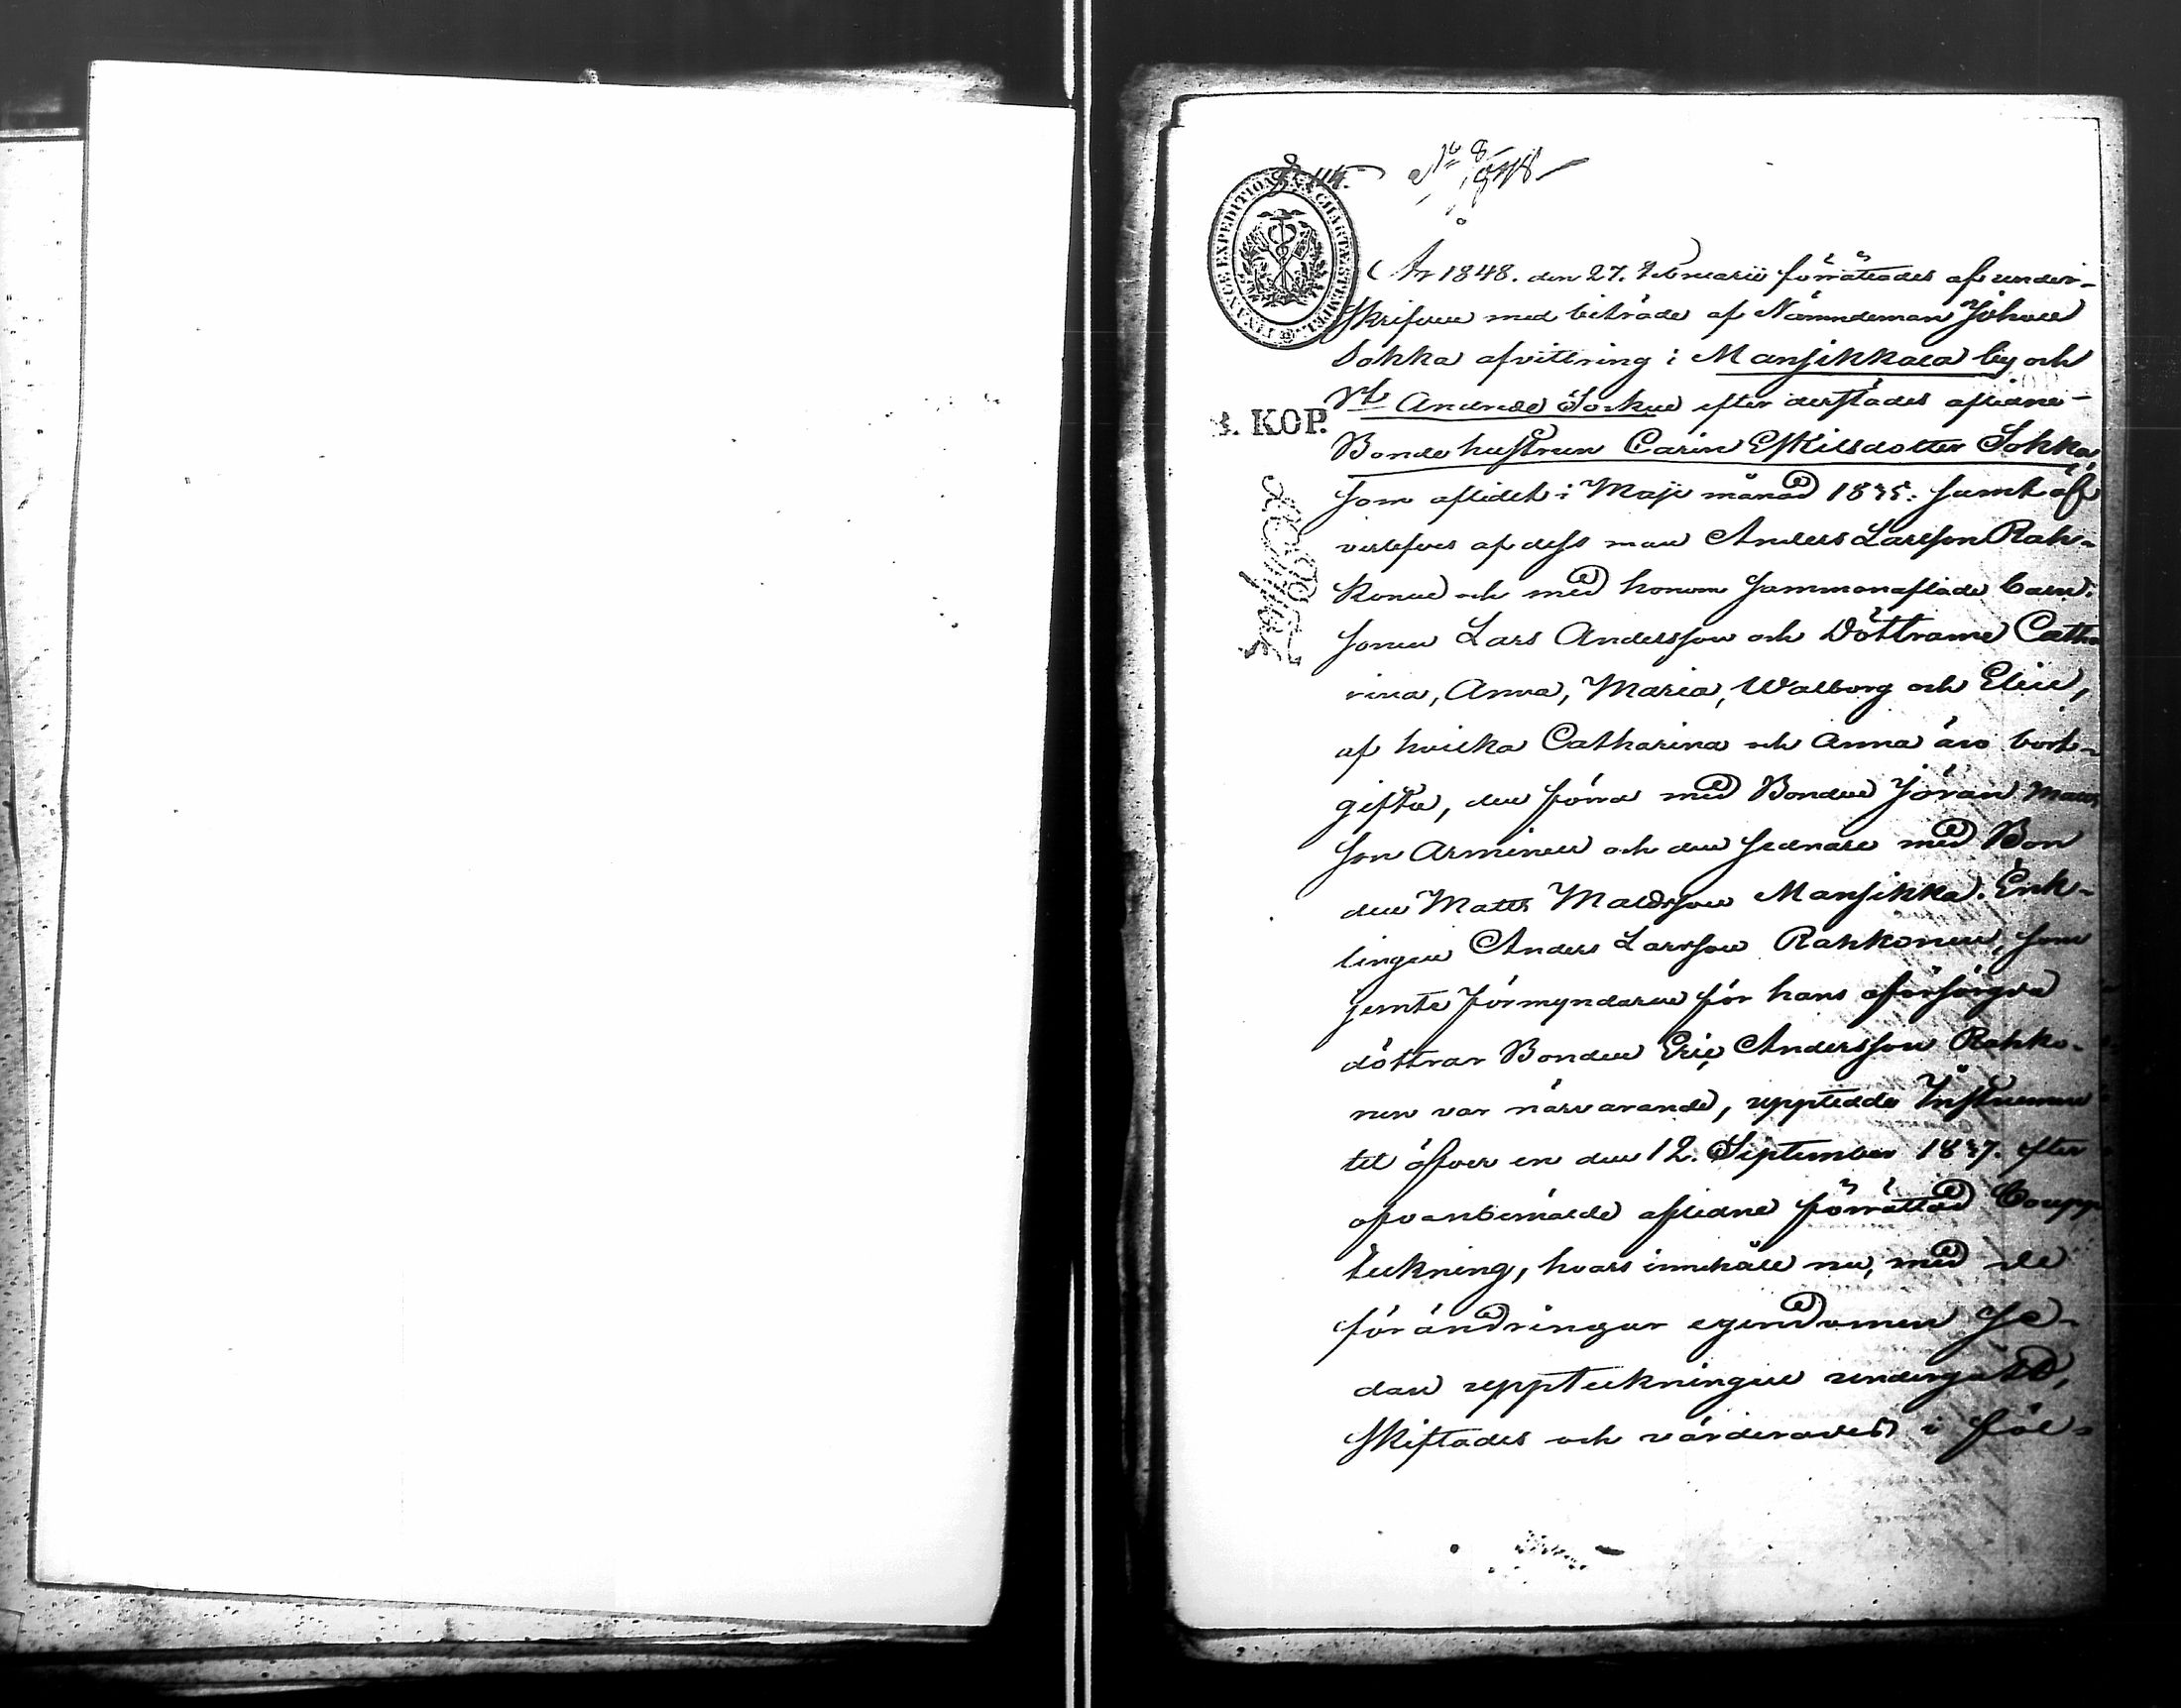 § 114.
No 8
1848
FINANCE EXPEDITIONENS CHARTÆ STEMPEL
3. KOP.
År 1848. den 27. Februarii förrättades af under-
skrifven med biträde af Nämndeman Johan
Sokka afvittring i Mansikkala by och
efter derstädes aflidne
Bondehustrun Carin Eskilsdotter Sokka,
som aflidit i Maji månad 1835. samt öf
verlefves af dess man Anders Larsson Rah-
konen och med honom sammanaflade barn:
sonen Lars Andersson och döttrarne Catha
rina, Anna, Maria, Walborg och Elin,
af hvilka Catharina och Anna äro bort-
gifta, den förra med Bonden Jöran Matts
son Arminen och den sednare med Bon
den Matts Mattsson Mansikka. Enk-
lingen Anders Larsson Rahkonen, som
jemte förmyndaren för hans oförsörgda
döttrar Bonden Eric Andersson Rahko-
nen var närvarande, uppteddo Instrumen
tet öfver en den 12. September 1837. efter
ofvanbemälde aflidne förrättad Boupp
teckning, hvars innehåll nu, med de
förändringar egendomen se-
dan uppteckningen undergått,
skiftades och värderades i föl-